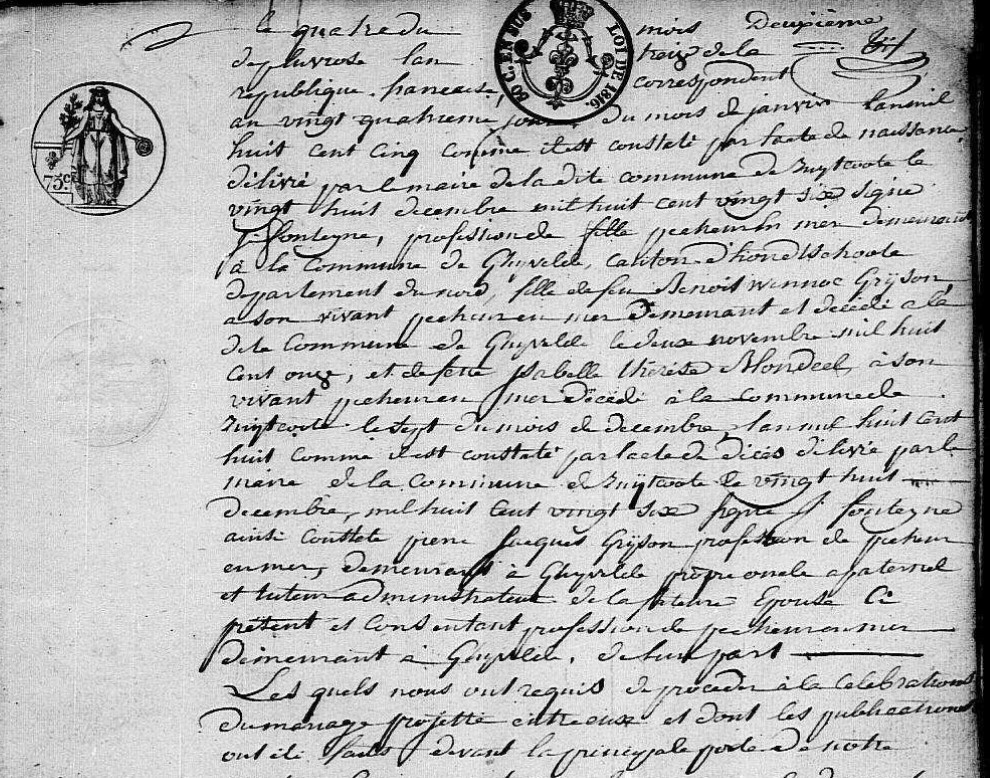 le quatre du mois Deuxième
de pluviose lan treize de la
république francaise, correspondent
au vingt quatrieme jour du mois de janvier lan mil
huit cent cinq comme il est constaté par lacte de naissance
délivré par le maire de la dite commune de Zuytcoote le
vingt huit decembre mil huit cent vingt six signé
J. fonteyne, profession de fille pecheur en mer demeurant
à la Commune de Ghyvelde, canton d'hondtschoote
departement du nord, fille de feu Benoit winnoc Gryson,
a son vivant pecheur en mer demeurant et décédé a la
de la Commune de Ghyvelde le deux novembre mil huit
cent onze, et de fette Isabelle thérèse Blondeel, à son
vivant pecheur en mer décédé à la commune de
Zuytcoote le sept du mois de decembre, lan mil huit cent
huit comme il est constaté par lacte de décés délivré par le
maire de la commune de Zuytcoote le vingt huit
decembre, mil huit cent vingt six signé J. fonteyne
ainsi Jacques Gryson profession de pecheur
en mer, demeurant à Ghyvelde paternel
et tuteur administrateur de la future Epouse Ci
présent et Consentant profession de pecheur en mer
demeurant à Ghyvelde, de l'un part
Les quels nous ont requis de proceder à la Celebrations
du mariage projetté entre eux et dont les publications
ont été faits devant la principale porte de notre
50 C. EN SUS
LOI DE 1816.
75 c.